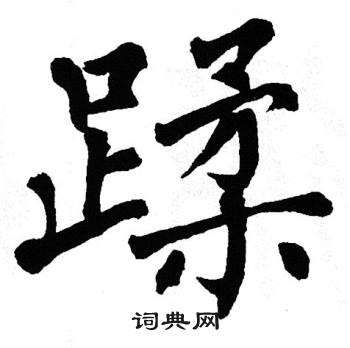 蹂
词典网